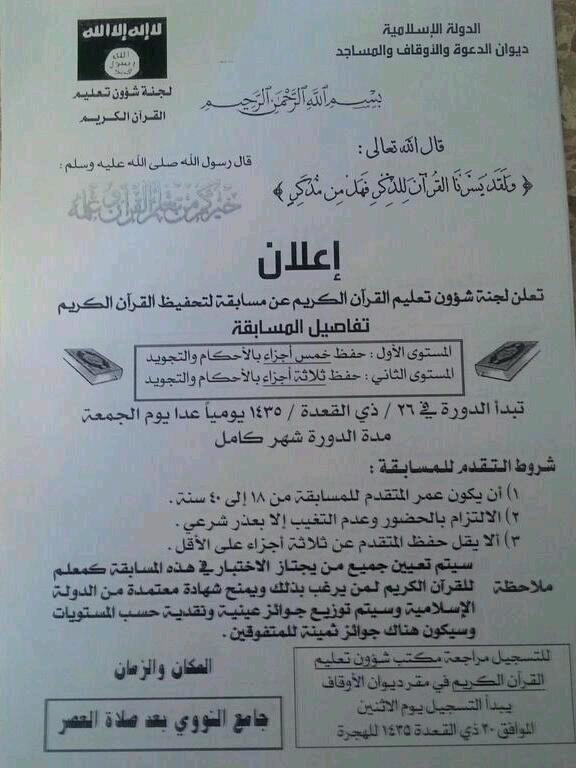 الدولة الإسلامية
ديوان الدعوة والأوقاف والمساجد
لا إله إلا الله
الله
رسول
محمد
لجنة شؤون تعليم
القرآن الكريم
بِسْمِ اللَّهِ الرَّحْمَنِ الرَّحِيمِ
قال الله تعالى :
﴿ وَلَقَدْ يَسَّرْنَا الْقُرْآنَ لِلذِّكْرِ فَهَلْ مِن مُّدَّكِرٍ ﴾
قال رسول الله صلى الله عليه وسلم :
خيركم من تعلم القرآن وعلمه
إعلان
تعلن لجنة شؤون تعليم القرآن الكريم عن مسابقة لتحفيظ القرآن الكريم
تفاصيل المسابقة
المستوى الأول : حفظ خمس أجزاء بالأحكام والتجويد
المستوى الثاني : حفظ ثلاثة أجزاء بالأحكام والتجويد
تبدأ الدورة في ٢٦ / ذي القعدة / ١٤٣٥ يومياً عدا يوم الجمعة
مدة الدورة شهر كامل
شروط التقدم للمسابقة :
١) أن يكون عمر المتقدم للمسابقة من ١٨ إلى ٤٠ سنة .
٢) الالتزام بالحضور وعدم التغيب إلا بعذر شرعي .
٣) ألا يقل حفظ المتقدم عن ثلاثة أجزاء على الأقل .
سيتم تعيين جميع من يجتاز الاختبار في هذه المسابقة كمعلم
ملاحظة للقرآن الكريم لمن يرغب بذلك ويمنح شهادة معتمدة من الدولة
الإسلامية وسيتم توزيع جوائز عينية ونقدية حسب المستويات
وسيكون هناك جوائز ثمينة للمتفوقين .
للتسجيل مراجعة مكتب شؤون تعليم
القرآن الكريم في مقر ديوان الأوقاف
يبدأ التسجيل يوم الاثنين
الموافق ٢٠ ذي القعدة ١٤٣٥ للهجرة
المكان والزمان
جامع النووي بعد صلاة العصر